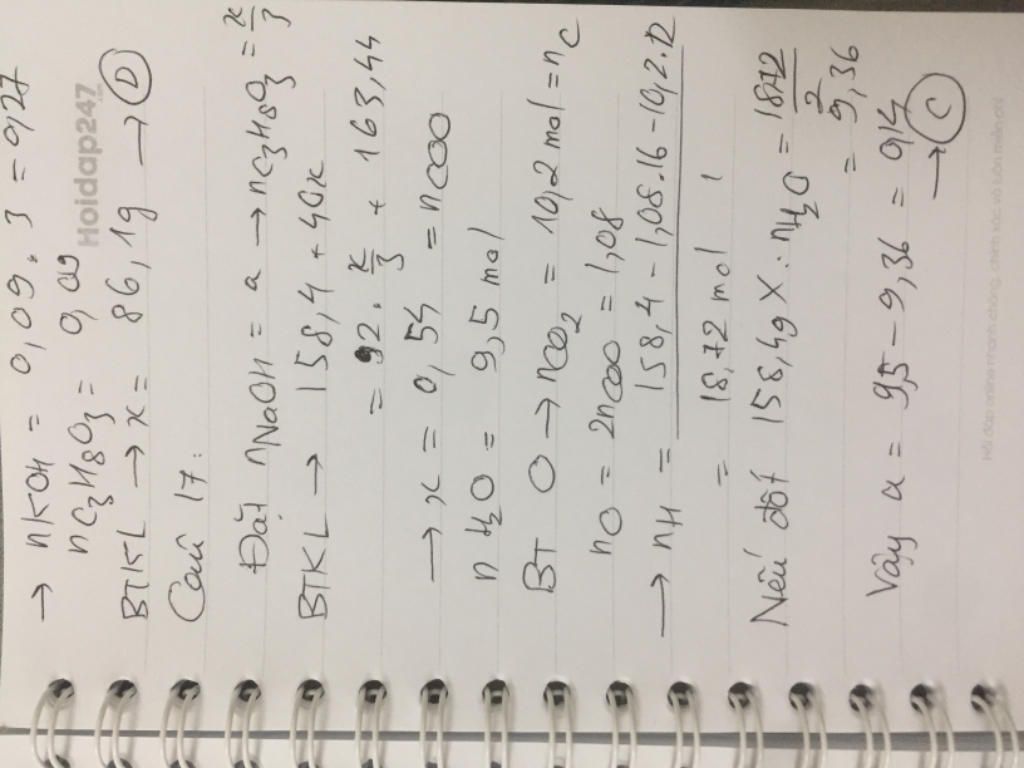 → nKOH = 0,09.3 = 0,27
nC3H8O3 = 0,09
BTKL → x = 86,1g → D
Câu 17:
Đặt nNaOH = a → nC3H8O3 = x/3
BTKL → 158,4 + 40x
= 92. x/3 + 163,44
→ x = 0,54 = nCOO
nH2O = 9,5 mol
BT O → nCO2 = 10,2 mol = nC
nO = 2nCOO = 1,08
→ nH = 158,4 - 1,08.16 - 10,2.12
= 18,72 mol
Nếu đốt 158,4g X: nH2O = 18,72/2
= 9,36
Vậy a = 9,5 - 9,36 = 0,14
→ C
Hoidap247
.com
Hỏi đáp online nhanh chóng, chính xác và luôn miễn phí